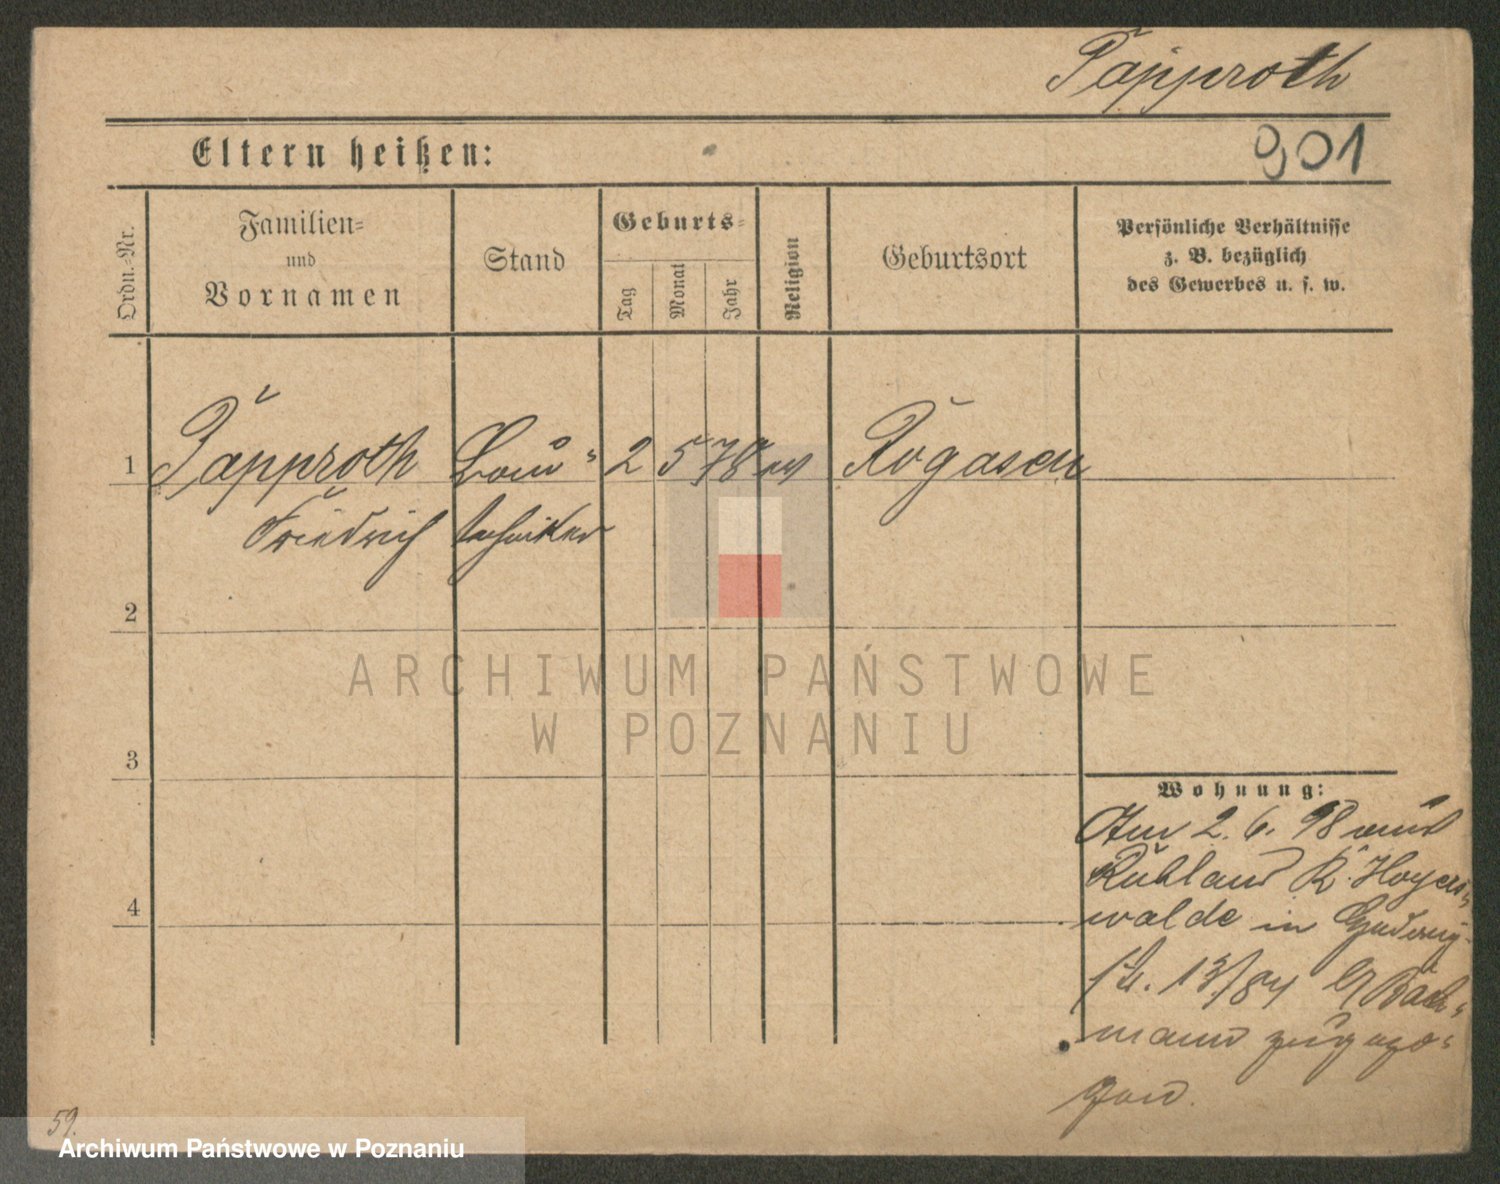 Papproth
901
Eltern heißen:
Ordn.-Nr.
Familien-
und
Vornamen
Stand
Geburts-
Tag
Monat
Jahr
Religion
Geburtsort
Persönliche Verhältnisse
z. B. bezüglich
des Gewerbes u. s. w.
1
Papproth
Friedrich
Bau-
techniker
2
5
78
ev
Rogasen
2
3
4
Wohnung:
Am 2. 6. 98 aus
Ruhland K. Hoyers-
walde in
13/84 b/ Bach-
mann zugezo-
gen.
59.
ARCHIWUM PAŃSTWOWE
W POZNANIU
Archiwum Państwowe w Poznaniu